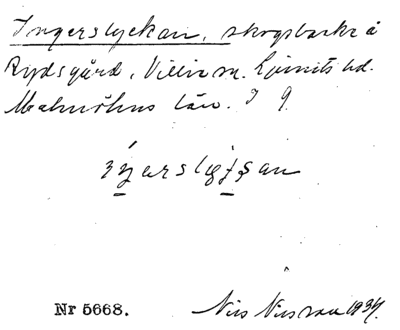 Ingerslyckan, skogsbacke å
Rydsgård, Villie sn. Ljunits hd.
Malmöhus län. I 9.
Nr 5668. Nils Nilsson 1934.